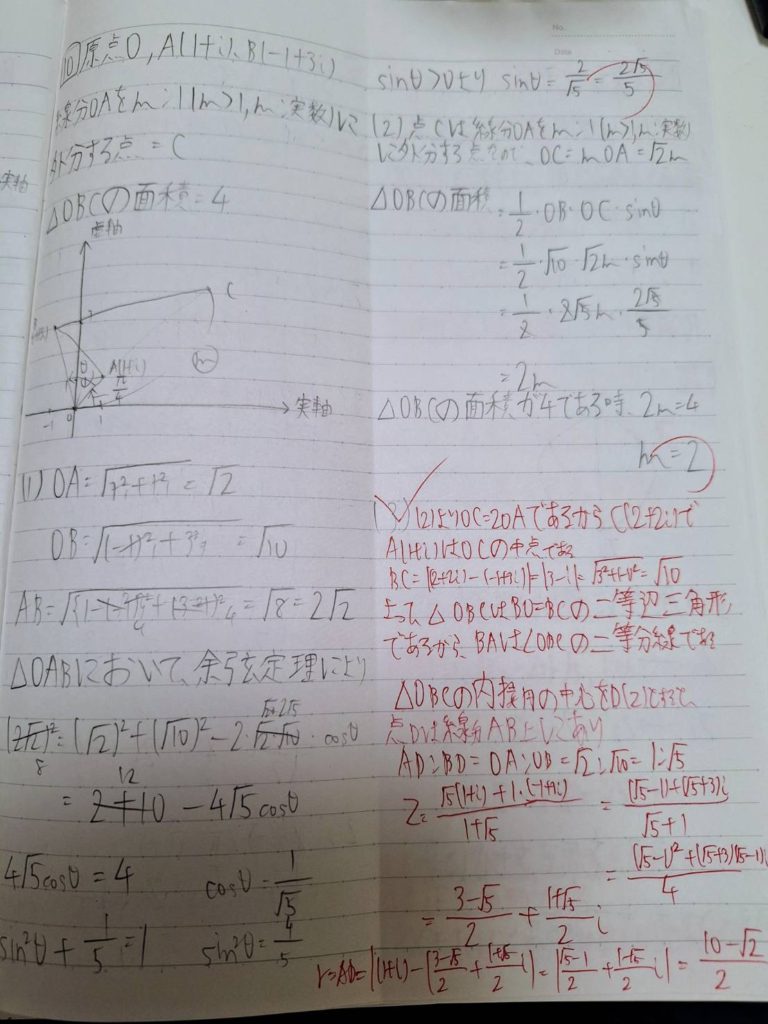 10 原点O, A(1+i), B(-1+3i)
線分OAをm:1(m>1, m:実数)に
外分する点 = C
△OBCの面積 = 4
虚軸
実軸
C
A(1+i)
π/4
m
実軸
-1 0 1
(1) OA = √(1²+1²) = √2
OB = √((-1)²+3²) = √10
AB = √8 = 2√2
△OABにおいて、余弦定理により
(2√2)² = (√2)² + (√10)² - 2・√2・√10・cosθ
8 2√5
12
= 2+10 - 4√5cosθ
4√5cosθ = 4 cosθ = 1/√5
sin²θ + 1/5 = 1 sin²θ = 4/5
No.
Date
sinθ>0より sinθ = 2/√5 = 2√5/5
(2) 点Cは線分OAをm:1(m>1, m:実数)
に外分する点なので、OC = mOA = √2m
△OBCの面積 = 1/2・OB・OC・sinθ
= 1/2・√10・√2m・sinθ
= 1/2・2√5m・2√5/5
= 2m
△OBCの面積が4である時、2m=4
m = 2
(3) (2)よりOC=2OAであるからC(2+2i)で
A(1+i)はOCの中点である
BC = |(2+2i) - (-1+3i)| = |3-i| = √(3²+(-1)²) = √10
よって△OBCはBO=BCの二等辺三角形
であるから、BAは∠OBCの二等分線である
△OBCの内接円の中心をD(z)とすると、
点Dは線分AB上にあり
AD:BD = OA:OB = √2:√10 = 1:√5
z = (√5(1+i) + 1・(-1+3i))/(1+√5) = ((√5-1)+(√5+3)i)/(√5+1)
= ((√5-1)²+(√5+3)(√5-1)i)/4
= (3-√5)/2 + (1+√5)/2 i
r = AD = |(1+i) - ((3-√5)/2 + (1+√5)/2 i)| = |(√5-1)/2 + (1-√5)/2 i| = (10-√2)/2